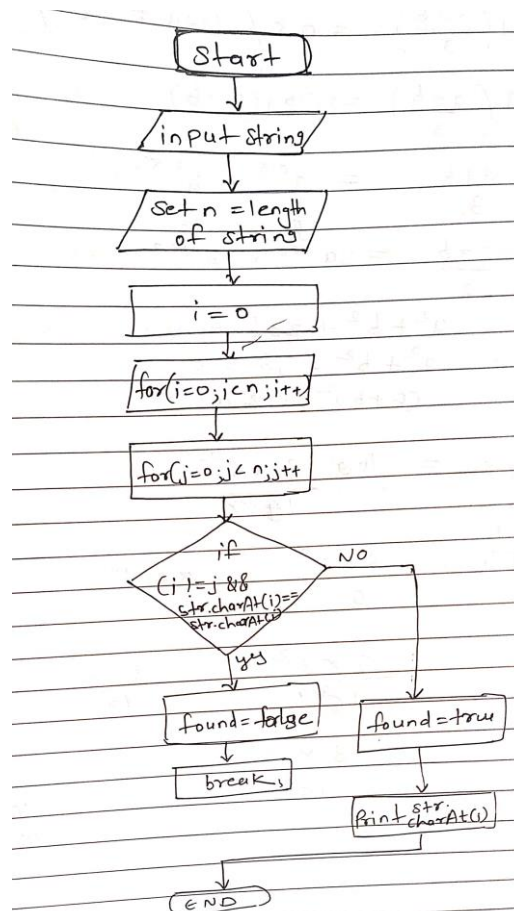 Start
input string
set n = length
of string
i = 0
for(i=0;i<n;i++)
for(j=0;j<n;j++
if
(i!=j &&
str.charAt(i)==
str.charAt(i)
NO
yes
found=false
found=true
break;
Print str.
charAt(i)
END